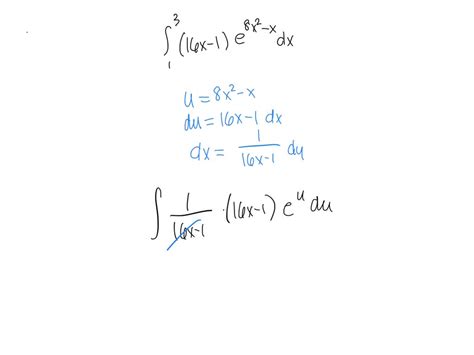 ∫₁³ (16x-1) e^(8x²-x) dx
u = 8x²-x
du = 16x-1 dx
dx = 1/(16x-1) du
∫ 1/(16x-1) · (16x-1) e^u du